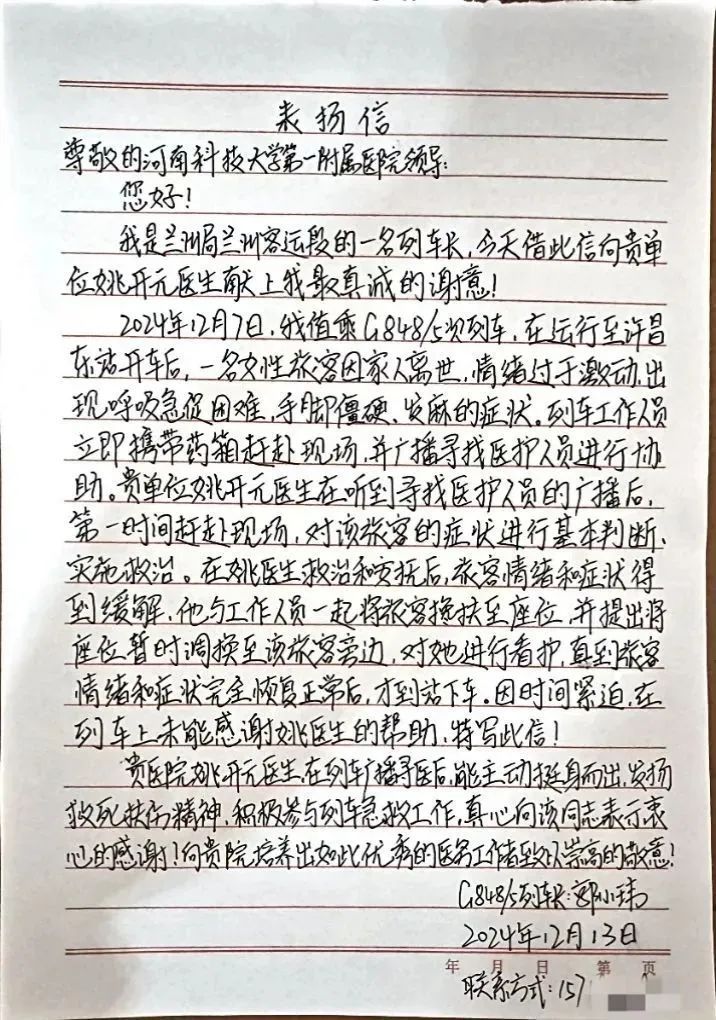 表扬信
尊敬的河南科技大学第一附属医院领导:
您好!
我是兰州局兰州客运段的一名列车长,今天借此信向贵单
位姚开元医生献上我最真诚的谢意!
2024年12月7日,我值乘G848/5次列车,在运行至许昌
东站开车后,一名女性旅客因家人离世,情绪过于激动,出
现呼吸急促困难,手脚僵硬、发麻的症状。列车工作人员
立即携带药箱赶赴现场,并广播寻找医护人员进行协
助。贵单位姚开元医生在听到寻找医护人员的广播后,
第一时间赶赴现场,对该旅客的症状进行基本判断、
实施救治。在姚医生救治和安抚后,旅客情绪和症状得
到缓解,他与工作人员一起将旅客搀扶至座位,并提出将
座位暂时调换至该旅客旁边,对她进行看护,直到旅客
情绪和症状完全恢复正常后,才到站下车。因时间紧迫,在
列车上未能感谢姚医生的帮助,特写此信!
贵医院姚开元医生,在列车广播寻医后,能主动挺身而出,发扬
救死扶伤精神,积极参与列车急救工作,真心向该同志表示衷
心的感谢!向贵院培养出如此优秀的医务工作者致以崇高的敬意!
G848/5列车长:郭小玮
2024年12月13日
年 月 日 第 页
联系方式:157